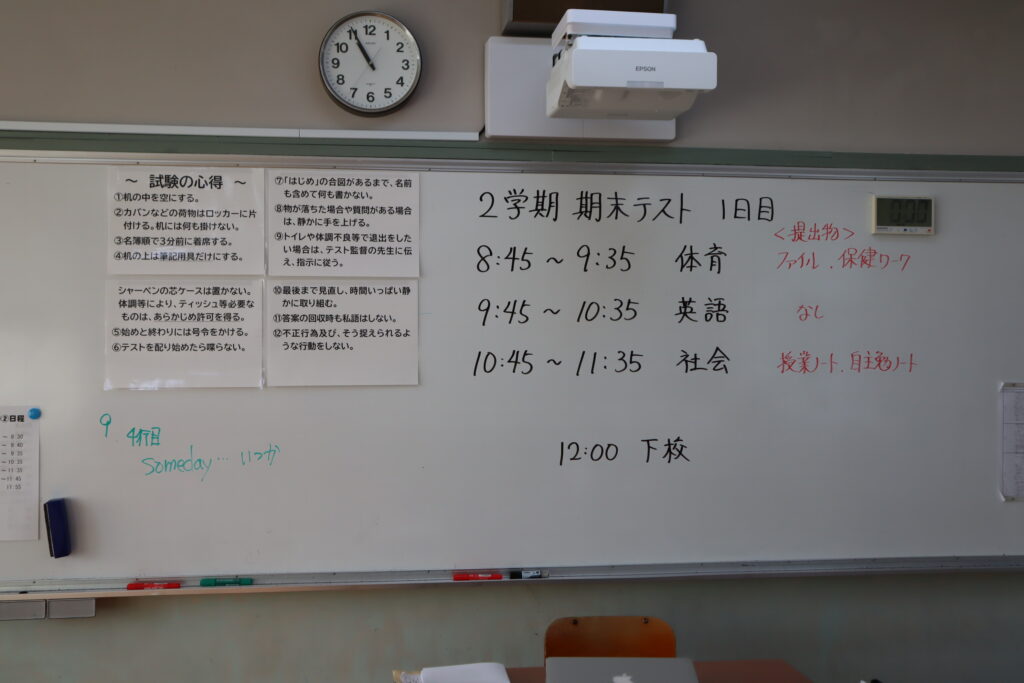 12
1
2
3
4
5
6
7
8
9
10
11
EPSON
～ 試験の心得 ～
①机の中を空にする。
②カバンなどの荷物はロッカーに片
付ける。机には何も掛けない。
③名簿順で3分前に着席する。
④机の上は筆記用具だけにする。
シャーペンの芯ケースは置かない。
体調等により、ティッシュ等必要な
ものは、あらかじめ許可を得る。
⑤始めと終わりには号令をかける。
⑥テストを配り始めたら喋らない。
⑦「はじめ」の合図があるまで、名前
も含めて何も書かない。
⑧物が落ちた場合や質問がある場合
は、静かに手を上げる。
⑨トイレや体調不良等で退出をした
い場合は、テスト監督の先生に伝
え、指示に従う。
⑩最後まで見直し、時間いっぱい静
かに取り組む。
⑪答案の回収時も私語はしない。
⑫不正行為及び、そう捉えられるよ
うな行動をしない。
2学期 期末テスト 1日目
<提出物>
8:45 ～ 9:35 体育 ファイル．保健ワーク
9:45 ～ 10:35 英語 なし
10:45 ～ 11:35 社会 授業ノート．自主勉ノート
12:00 下校
9．4行目
someday… いつか
②日程
～ 8:30
～ 8:40
～ 9:35
～10:35
～11:35
～11:45
11:55